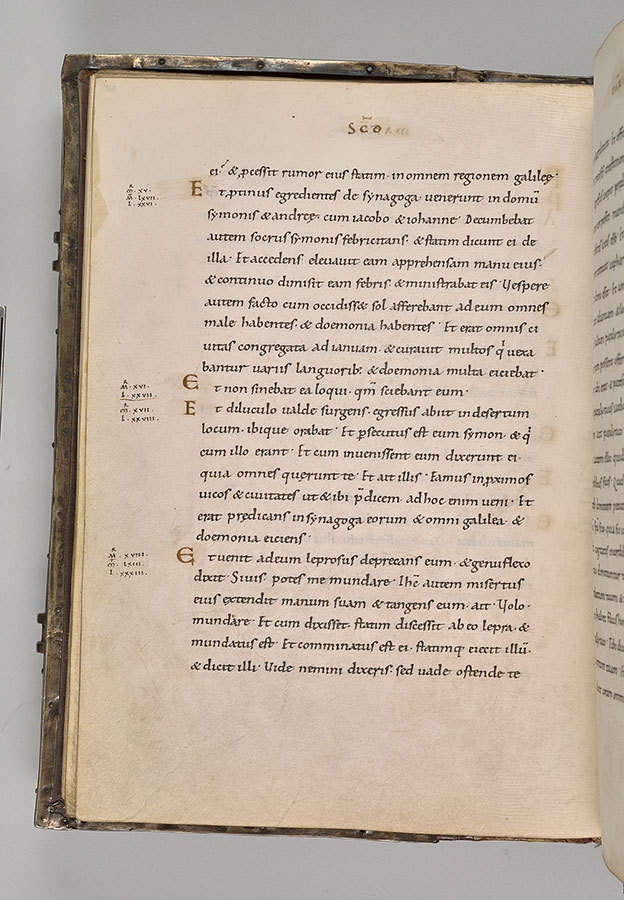 SCD̄
ei· & p̱cessit rumor eius statim· in omnem regionem galileę·
Et, p̱tinus egredientes de synagoga· uenerunt in domū
symonis & andreę· cum iacobo & iohanne· Decumbebat
autem socrus symonis febricitans· & statim dicunt ei de
illa· Et accedens eleuauit eam apprehensam manu eius·
& continuo dimisit eam febris· & ministrabat eis· Vespere
autem facto cum occidiss& sol afferebant ad eum omnes
male habentes· & doemonia habentes· Et erat omnis ci
uitas congregata ad ianuam· & curauit multos q̇ uexa
bantur uariis languorib; & doemonia multa eiciebat·
Et non sinebat ea loqui· qm̄ sciebant eum·
Et diluculo ualde surgens· egressus abiit in desertum
locum· ibique orabat· Et p̱secutus est eum symon· & q̇
cum illo erant· Et cum inuenissent eum dixerunt ei·
quia omnes querunt te· Et ait illis· Eamus in p̱ximos
uicos & ciuitates ut & ibi p̄dicem· ad hoc enim ueni· Et
erat prędicans in synagoga eorum & omni galilea· &
doemonia eiciens·
Et uenit ad eum leprosus deprecans eum· & genu flexo
dixit· Si uis potes me mundare· Ihc̄ autem misertus
eius extendit manum suam & tangens eum· ait· Volo·
mundare· Et cum dixisset· statim discessit ab eo lepra· &
mundatus est· Et comminatus est ei· statimq; eiecit illū·
& dicit illi· Vide nemini dixeris· sed uade ostende te
R
M· XV·
M· LXVII·
L· XXVI·
R
M· XVI·
L· XXVII·
R
M· XVII·
L· XXVIII·
R
M· XVIII·
M· LXIII·
L· XXXIII·